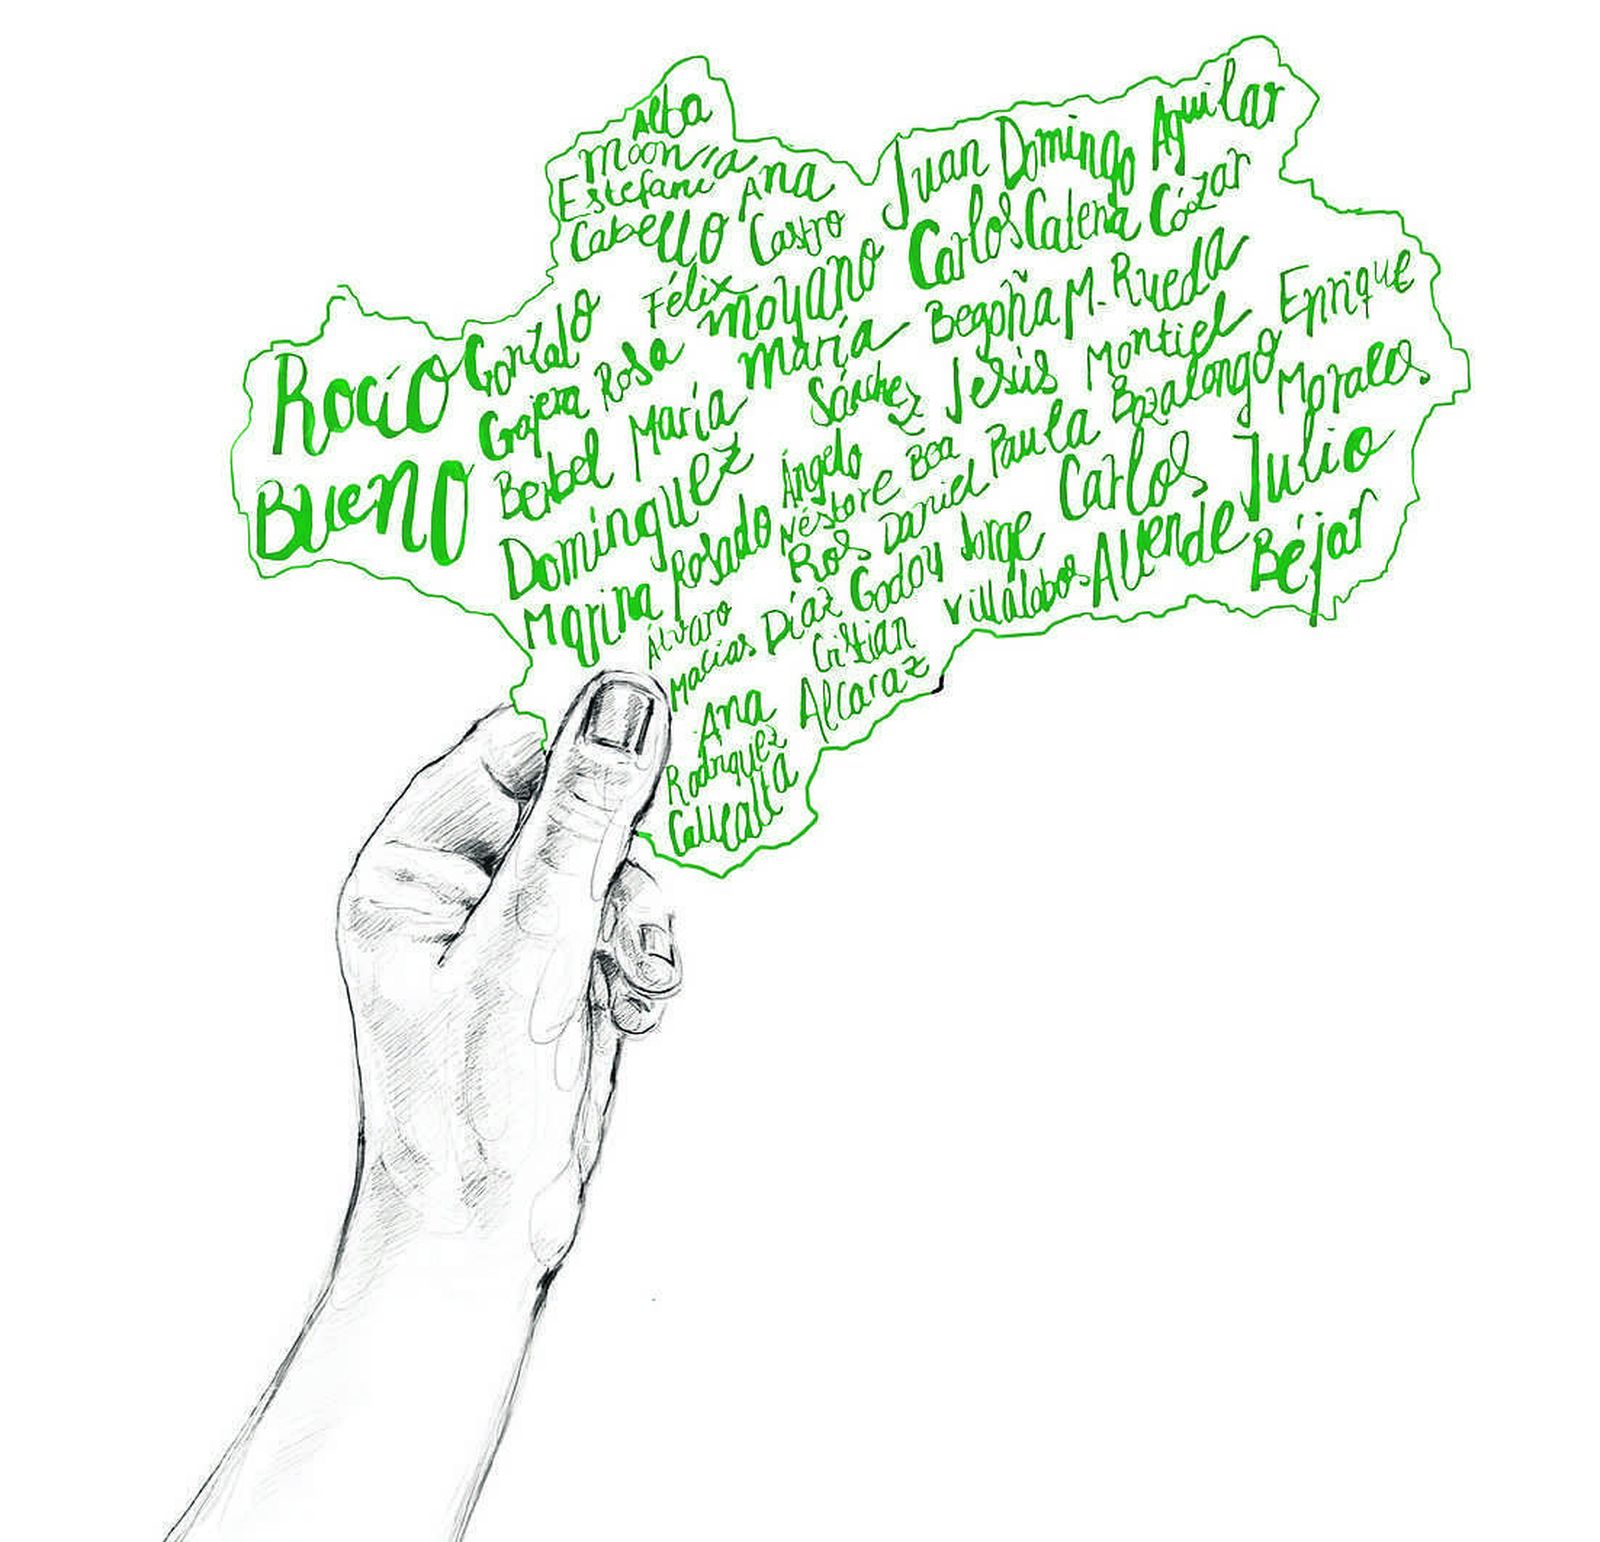 Alba
Moon
Estefanía
Cabello
Ana
Castro
Juan Domingo Aguilar
Carlos Catena Cózar
Félix
Moyano
Begoña M. Rueda
Rocío
Bueno
Gonzalo
Grajera
Rosa
Berbel
María
Domínguez
María
Sánchez
Jesús
Montiel
Enrique
Morales
Marina
Rosado
Ángelo
Néstore
Bea
Ros
Daniel
Díaz Godoy
Paula
Bozalongo
Carlos
Allende
Julio
Béjar
Jorge
Villalobos
Álvaro
Macías
Cristian
Alcaraz
Ana
Rodríguez
Callealta